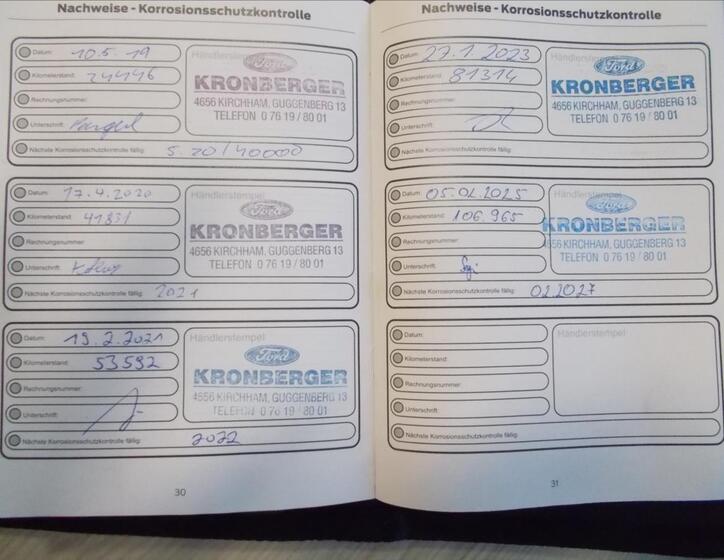 Nachweise - Korrosionsschutzkontrolle
Datum: 10.5.19
Händlerstempel
Ford
Kilometerstand: 24446
KRONBERGER
4656 KIRCHHAM, GUGGENBERG 13
TELEFON 0 76 19 / 80 01
Rechnungsnummer:
Unterschrift:
Nächste Korrosionsschutzkontrolle fällig: 5.20/40000
Datum: 17.4.2020
Händlerstempel
Ford
Kilometerstand: 41831
KRONBERGER
4656 KIRCHHAM, GUGGENBERG 13
TELEFON 0 76 19 / 80 01
Rechnungsnummer:
Unterschrift:
Nächste Korrosionsschutzkontrolle fällig: 2021
Datum: 19.2.2021
Händlerstempel
Ford
Kilometerstand: 53592
KRONBERGER
4656 KIRCHHAM, GUGGENBERG 13
TELEFON 0 76 19 / 80 01
Rechnungsnummer:
Unterschrift:
Nächste Korrosionsschutzkontrolle fällig: 2022
30
Nachweise - Korrosionsschutzkontrolle
Datum: 27.1.2023
Händlerstempel
Ford
Kilometerstand: 81314
KRONBERGER
4656 KIRCHHAM, GUGGENBERG 13
TELEFON 0 76 19 / 80 01
Rechnungsnummer:
Unterschrift:
Nächste Korrosionsschutzkontrolle fällig:
Datum: 05.02.2025
Händlerstempel
Ford
Kilometerstand: 106.965
KRONBERGER
4656 KIRCHHAM, GUGGENBERG 13
TELEFON 0 76 19 / 80 01
Rechnungsnummer:
Unterschrift:
Nächste Korrosionsschutzkontrolle fällig: 02.2027
Datum:
Händlerstempel
Kilometerstand:
Rechnungsnummer:
Unterschrift:
Nächste Korrosionsschutzkontrolle fällig:
31